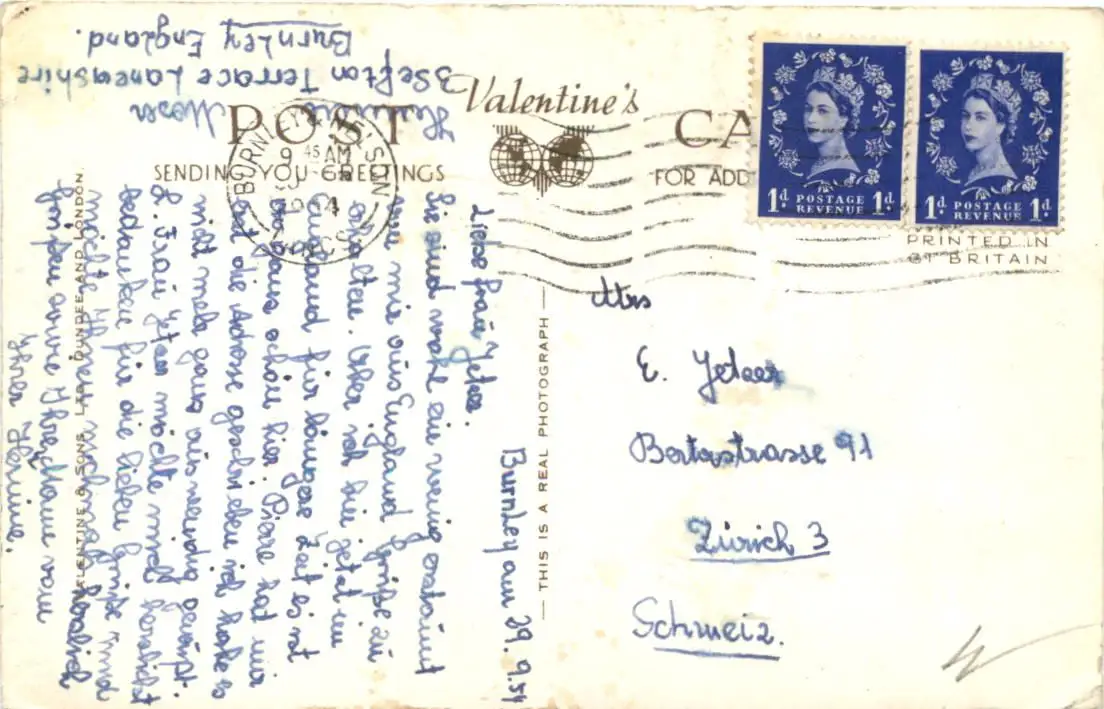 Valentine's
POST CA
SENDING YOU GREETINGS
FOR ADD
1d POSTAGE REVENUE 1d.
1d POSTAGE REVENUE 1d.
PRINTED IN
GT BRITAIN
BURNL
9 45 AM
THIS IS A REAL PHOTOGRAPH
VALENTINE & SONS, LTD. DUNDEE AND LONDON.
Burnley am 29. 9. 54
Liebe Frau Jeteer.
Sie sind wohl ein wenig erstaunt
von mir aus England Grüße zu
erhalten. Aber ich bin jetzt in
England für längere Zeit es ist
ganz schön hier. Piere hat mir
die Adresse geschrieben ich habe es
nicht mehr ganz auswendig gewußt.
L. Frau Jeteer möchte mich herzlichst
bedanken für die lieben Grüße und
möchte Ihnen nochmals herzlich
Grüßen sowie
Ihrer Hermine.
Hermine Moser
3 Sefton Terrace Lancashire
Burnley England.
Mrs
E. Jeteer
Bertastrasse 91
Zürich 3
Schweiz.